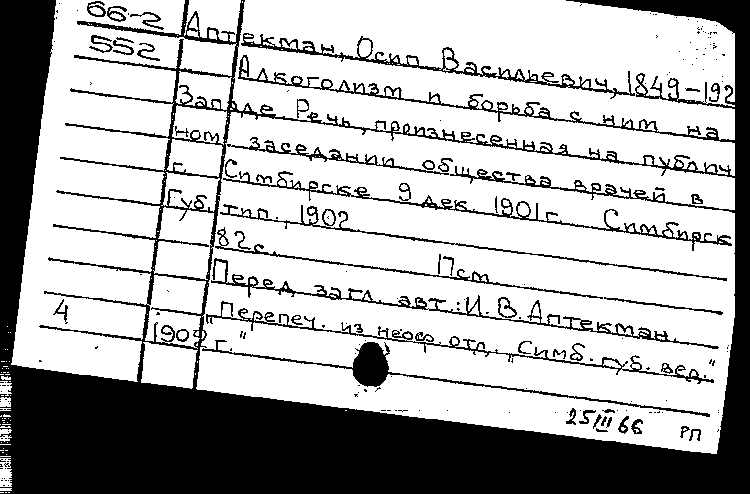 66-2 Аптекман, Осип Васильевич, 1849-192
552 Алкоголизм и борьба с ним на
Западе. Речь, произнесенная на публич
ном заседании общества врачей в
г. Симбирске 9 дек. 1901 г. Симбирск
Губ. тип., 1902
82 с. Псм
Перед загл. авт.: И. В. Аптекман.
4 "Перепеч. из неоф. отд. „Симб. губ. вед."
1902 г."
25/III 66 РП